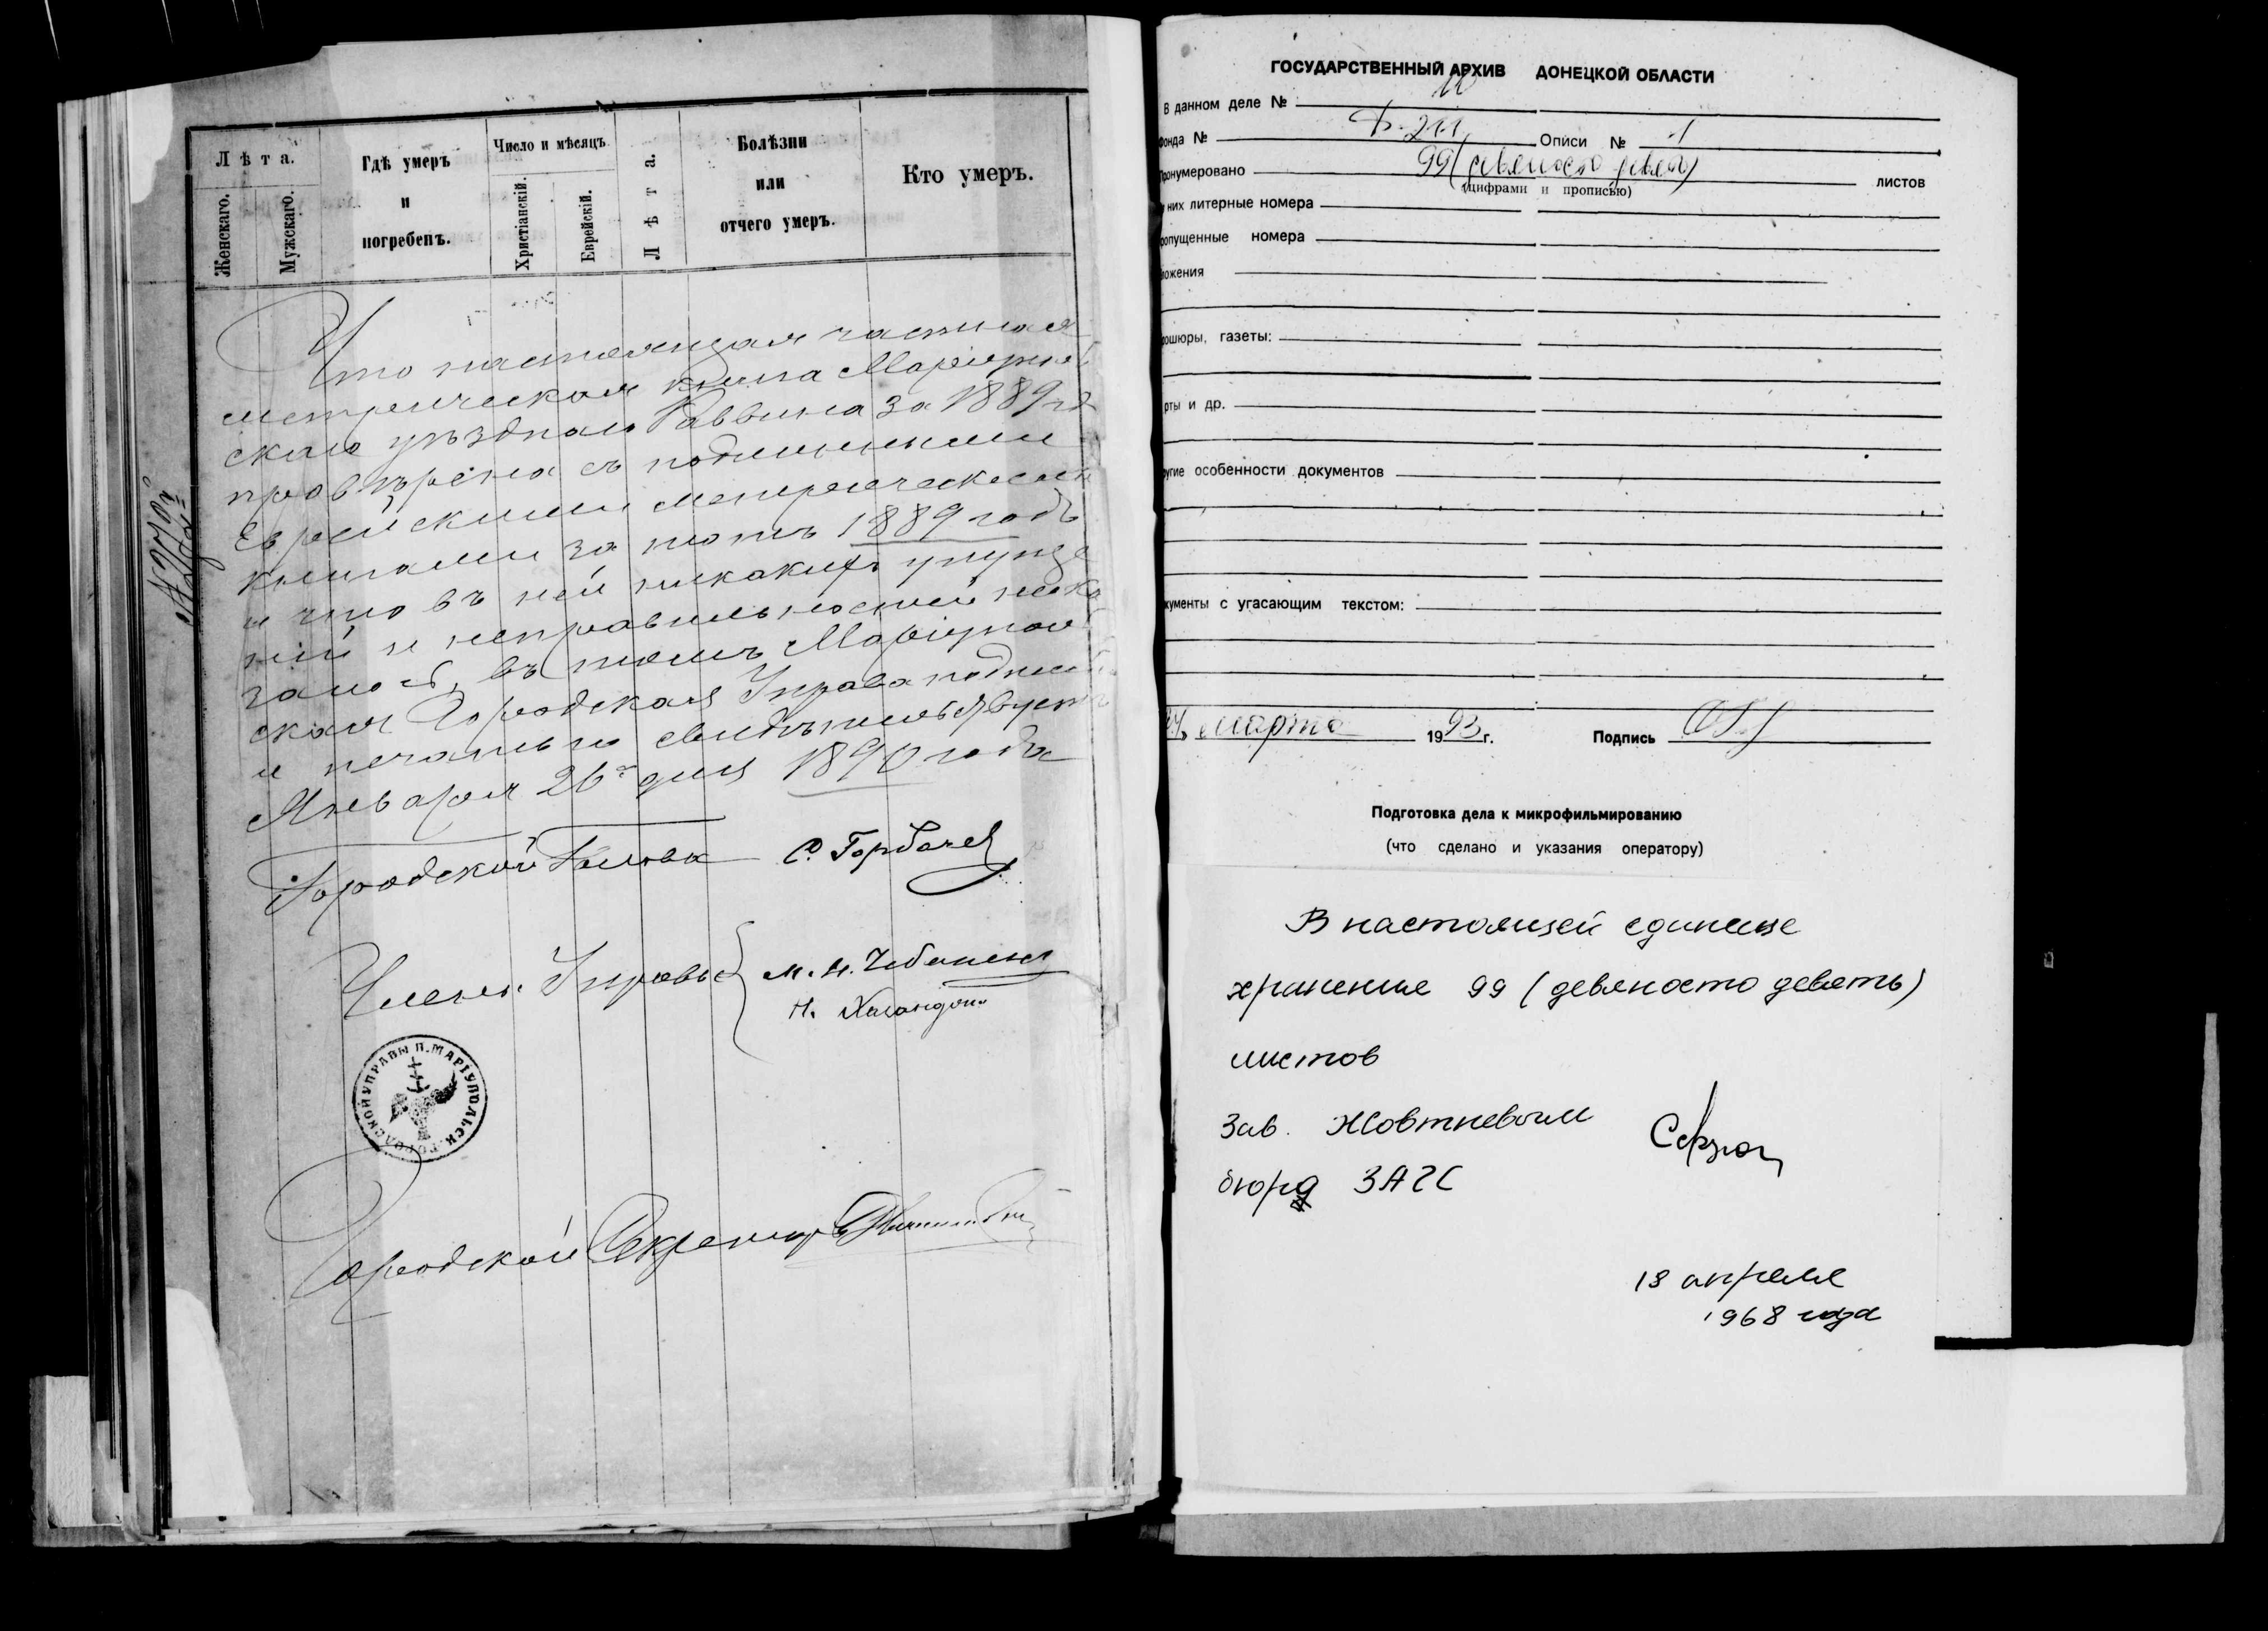 Лѣта.
Женскаго.
Мужскаго.
Гдѣ умеръ
и
погребенъ.
Число и мѣсяцъ
Христіанскій.
Еврейскій.
Лѣта.
Болѣзни
или
отчего умеръ.
Кто умеръ.
Что настоящая частная
метрическая книга Маріуполь
скаго уѣзднаго Раввина за 1889 годъ
провѣрена съ подлинными
Еврейскими метрическими
книгами за тотъ 1889 годъ
и что въ ней никакихъ упуще
ній и неправильностей неока
залось, въ томъ Маріуполь
ская Городская Управа подписью
и печатью свидѣтельствуетъ
Января 26го дня 1890 года
Городской Голова С. Горбачев
Члены Управы
Н.
ГОРОДСКОЙ УПРАВЫ П. МАРІУПОЛЬСК.
Городской Секретарь
ГОСУДАРСТВЕННЫЙ АРХИВ ДОНЕЦКОЙ ОБЛАСТИ
В данном деле № 10
фонда № Ф-211 Описи № 1
пронумеровано 99 (девяносто девять) листов
(цифрами и прописью)
них литерные номера
опущенные номера
ложения
ошюры, газеты:
рты и др.
угие особенности документов
кументы с угасающим текстом:
марта 1993 г. Подпись
Подготовка дела к микрофильмированию
(что сделано и указания оператору)
В настоящей единице
хранения 99 (девяносто девять)
листов
Зав. Жовтневым
бюро ЗАГС
18 апреля
1968 года